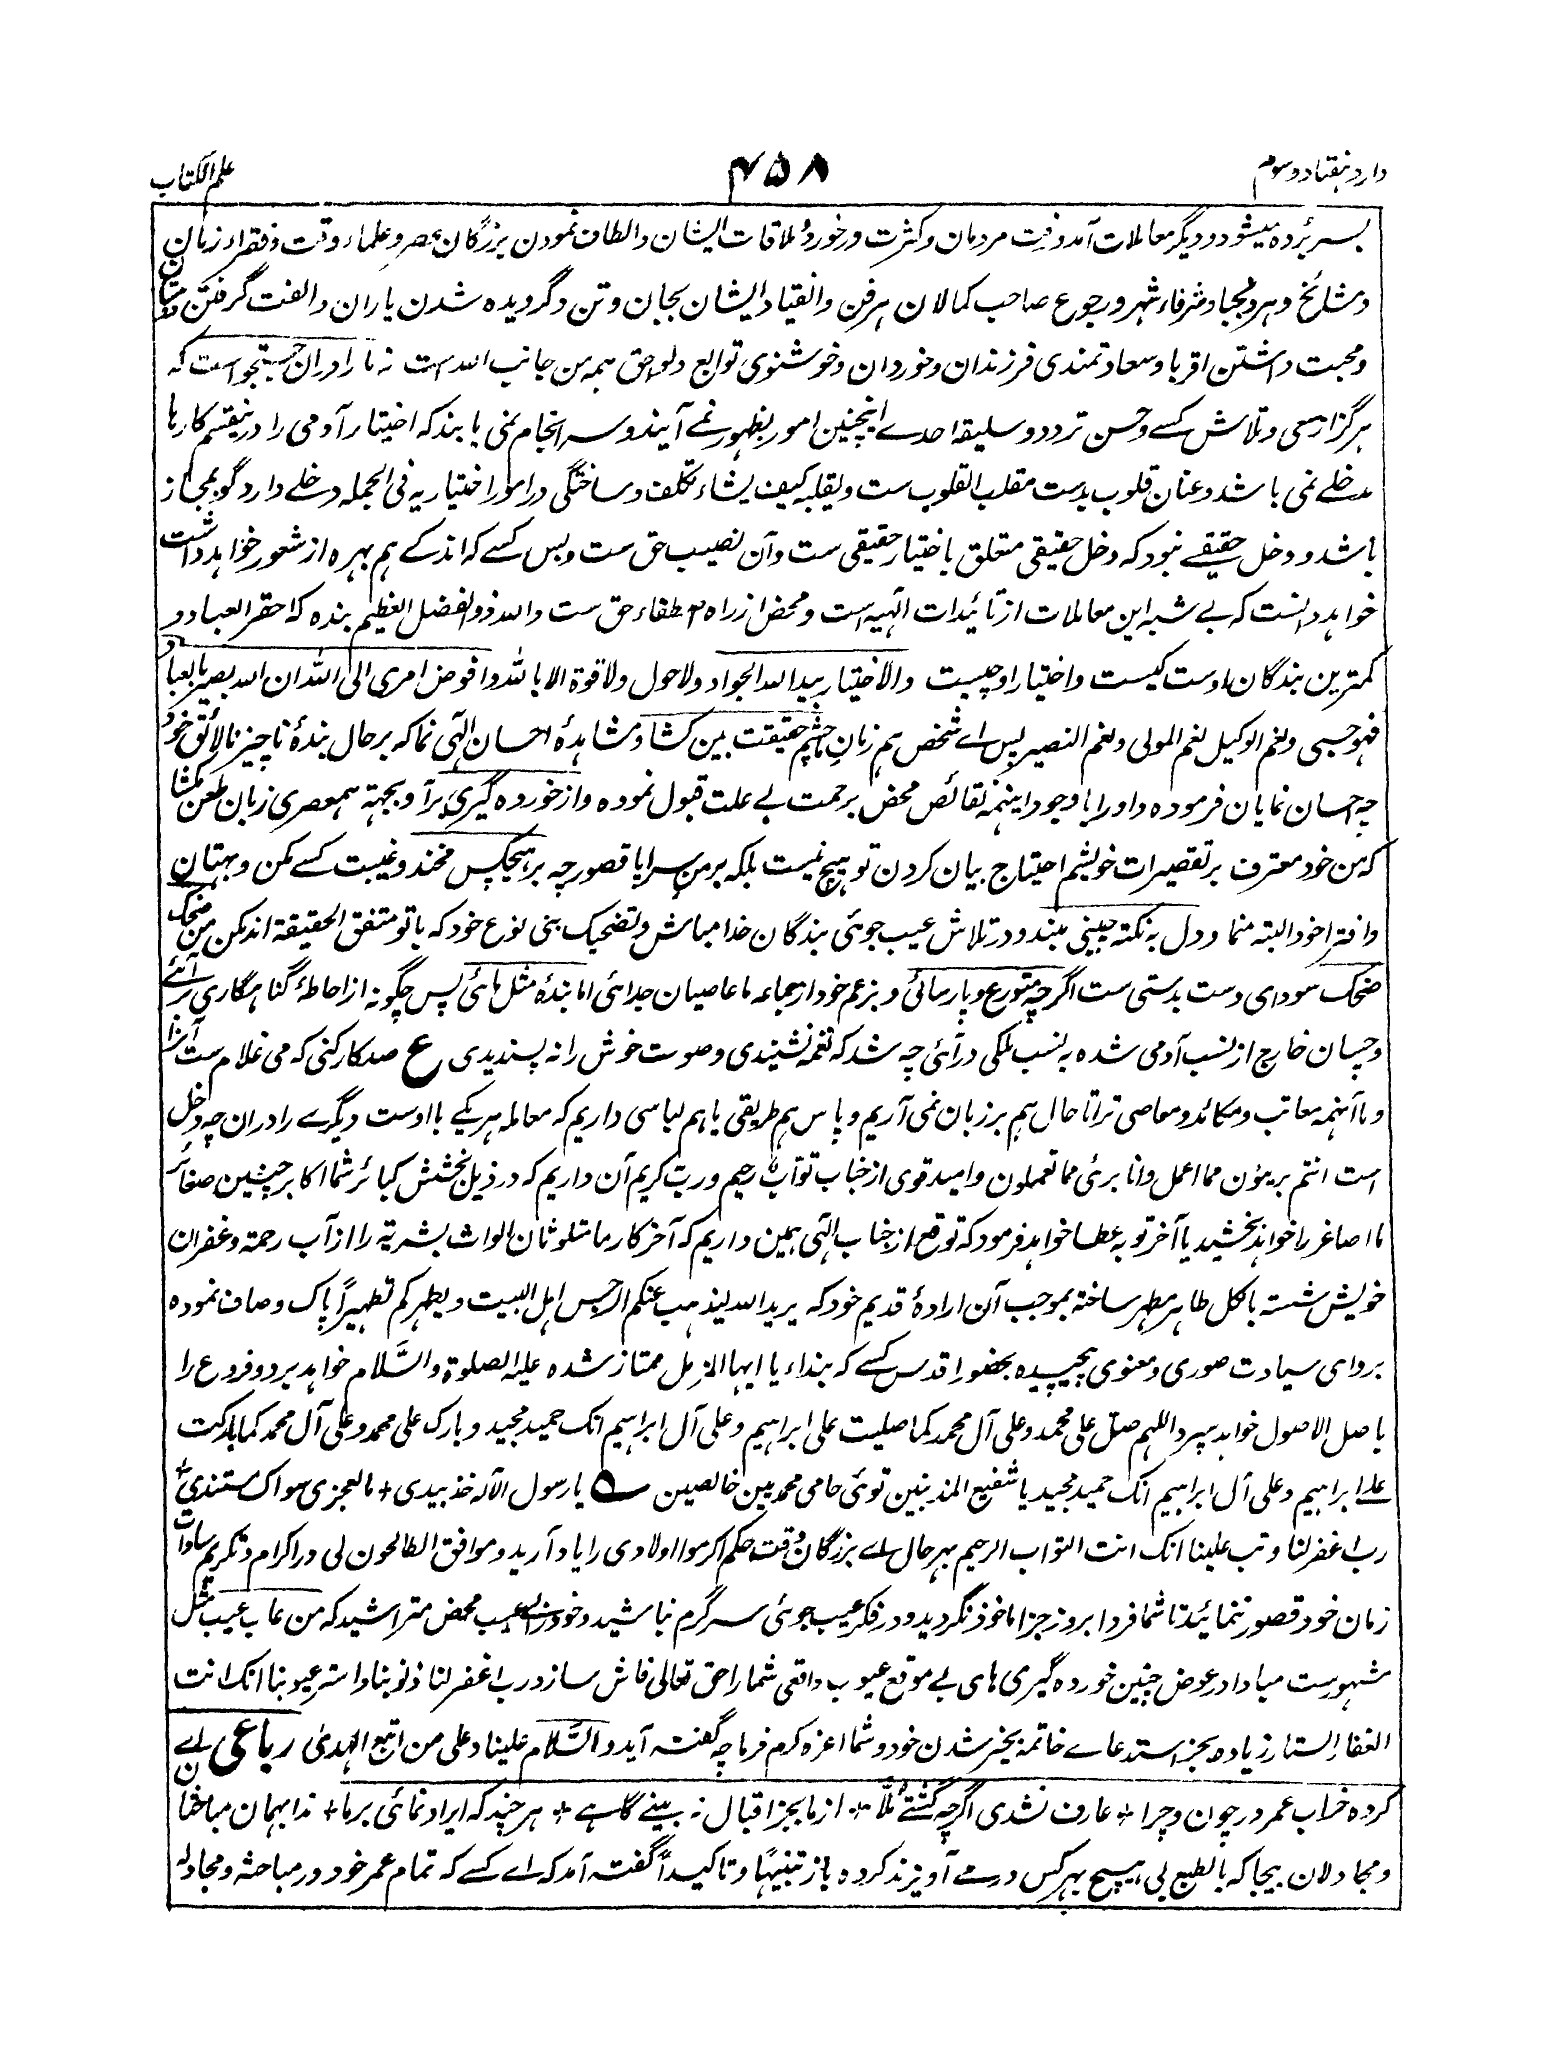 وارد هفتاد و سوم ۴۵۸ علم الکتاب
بسر برده میشود و دیگر معاملات آمد و رفت مردمان و کثرت و رخورد ملاقات ایشان و الطاف نمودن بزرگان عصر و علماء وقت و فقراء زمان
و مشائخ و هر و نجبا و شرفاء شهر و رجوع صاحب کمالان هر فن و انقیاد ایشان بجان و تن و گرویده شدن یاران و الفت گرفتن
و محبت داشتن اقربا و سعادتمندی فرزندان و خوردان و خوشنودی توابع و لواحق همه من جانب الله ست نه ما را دران جستجو است که
هرگز از سعی و تلاش کسے و حسن تردد و سلیقه احدے اینچنین امور بظهور نمے آیند و سر انجام نمی یابند که اختیار آدمی را درینقسم کارها
مدخلے نمی باشد و عنان قلوب بدست مقلب القلوب ست و یقلبه کیف یشاء تکلف و ساختگی در امور اختیاریه فی الجمله دخلے دارد گو بمجاز
باشد و دخل حقیقے نبود که دخل حقیقی متعلق باختیار حقیقی ست و آن نصیب حق ست و بس کسے که اندکے هم بهره از شعور خواهد داشت
خواهد دانست که بے شبه این معاملات از تائیدات الٓهیه است و محض از راه اصطفاء حق ست والله ذو الفضل العظیم بنده که احقر العباد و
کمترین بندگان اوست کیست و اختیار او چیست والاختیار بید الله الجواد ولا حول ولا قوة الا بالله وافوض امری الی الله ان الله بصیر بالعباد
فهو حسبی و نعم الوکیل نعم المولی و نعم النصیر پس اے شخص هم زمان ما چشم حقیقت بین کشا و مشاهدهٔ احسان الٓهی نما که بر حال بندهٔ ناچیز نالائق خود
چه احسان نمایان فرموده و او را باوجود اینهمه نقائص محض برحمت بے علت قبول نموده و از خورده گیری برآ و بجهة همعصری زبان طعن مکشا
که من خود معترف بر تقصیرات خویشم احتیاج بیان کردن تو هیچ نیست بلکه بر من سراپا قصور چه بر هیچکس مخند و غیبت کسے مکن و بهتان
و افترا خود البته منما و دل به نکته چینی مبند و در تلاش عیب جوئی بندگان خدا مباش و تضحیک بنی نوع خود که با تو متفق الحقیقة اند مکن من ضحک
ضحک سودای دست بدستی ست اگرچه متورع و پارسائی و بزعم خود از جماعهٔ ما عاصیان جدائی اما بندهٔ مثل مائی پس چگونه از احاطهٔ گناهگاری برآئے
و چسان خارج از نسب آدمی شده به نسب ملکی درآئی چه شد که نغمه نشنیدی و صوت خوش را نه پسندیدی ع صد کار کنی که می غلام ست آنرا
و ما آنهمه معاتب و مکائد و معاصی ترا تا حال هم بر زبان نمی آریم و پاس هم طریقی یا هم لباسی داریم که معامله هر یکے با اوست دیگرے را دران چه دخل
است انتم بریئون مما اعمل و انا برئ مما تعملون و امید قوی از جناب توّاب رحیم و ربّ کریم آن داریم که در ذیل بخشش کبائر شما اکابر چنین صغائر
ما اصاغر را خواهد بخشید یا آخر توبه عطا خواهد فرمود که توقع از جناب الٓهی همین داریم که آخر کار ما متلوثان الواث بشریة را از آب رحمة و غفران
خویش شسته بالکل طاهر مطهر ساخته بموجب آن ارادهٔ قدیم خود که یرید الله لیذهب عنکم الرجس اهل البیت و یطهرکم تطهیراً پاک و صاف نموده
بردای سیادت صوری و معنوی پیچیده بحضور اقدس کسے که بنداء یا ایها المزمل ممتاز شده علیه الصلوة والسّلام خواهد برد و فروع را
باصل الاصول خواهد سپرد اللهم صل علی محمد و علی آل محمد کما صلیت علی ابراهیم و علی آل ابراهیم انک حمید مجید و بارک علی محمد و علی آل محمد کما بارکت
علی ابراهیم و علی آل ابراهیم انک حمید مجید یا شفیع المذنبین توئی حامی محمدیین خالصین یا رسول الآله خذ بیدی + ما لعجزی سواک مستندی
رب اغفر لنا و تب علینا انک انت التواب الرحیم بهر حال اے بزرگان وقت حکم اکرموا اولادی را یاد آرید و موافق الطالحون لی در اکرام و تکریم سادات
زمان خود قصور ننمائید تا شما فردا بروز جزا ماخوذ نگردید و در فکر عیب جوئی سرگرم نباشید و خود را عیب محض متراشید که من عاب عیب مثل
مشهورست مبادا در عوض چنین خورده گیری های بے موقع عیوب واقعی شما را حق تعالی فاش سازد رب اغفر لنا ذنوبنا و استر عیوبنا انک انت
الغفار الستار زیاده بجز استدعاے خاتمه بخیر شدن خود و شما اعزه کرم فرما چه گفته آید والسّلام علینا و علی من اتبع الهدیٰ رباعی اے
کرده خراب عمر در چون و چرا + عارف نشدی اگرچه گشتی ملّا + از ما بجز اقبال نه بینے گاہے + هر چند که ایراد نمائی بر ما + ندا بهمان مباحثا
و مجادلان بیجا که بالطبع بی هیچ بهر کس در مے آویزند کرده باز تنبیهاً و تاکیداً گفته آمد که اے کسے که تمام عمر خود در مباحثه و مجادله